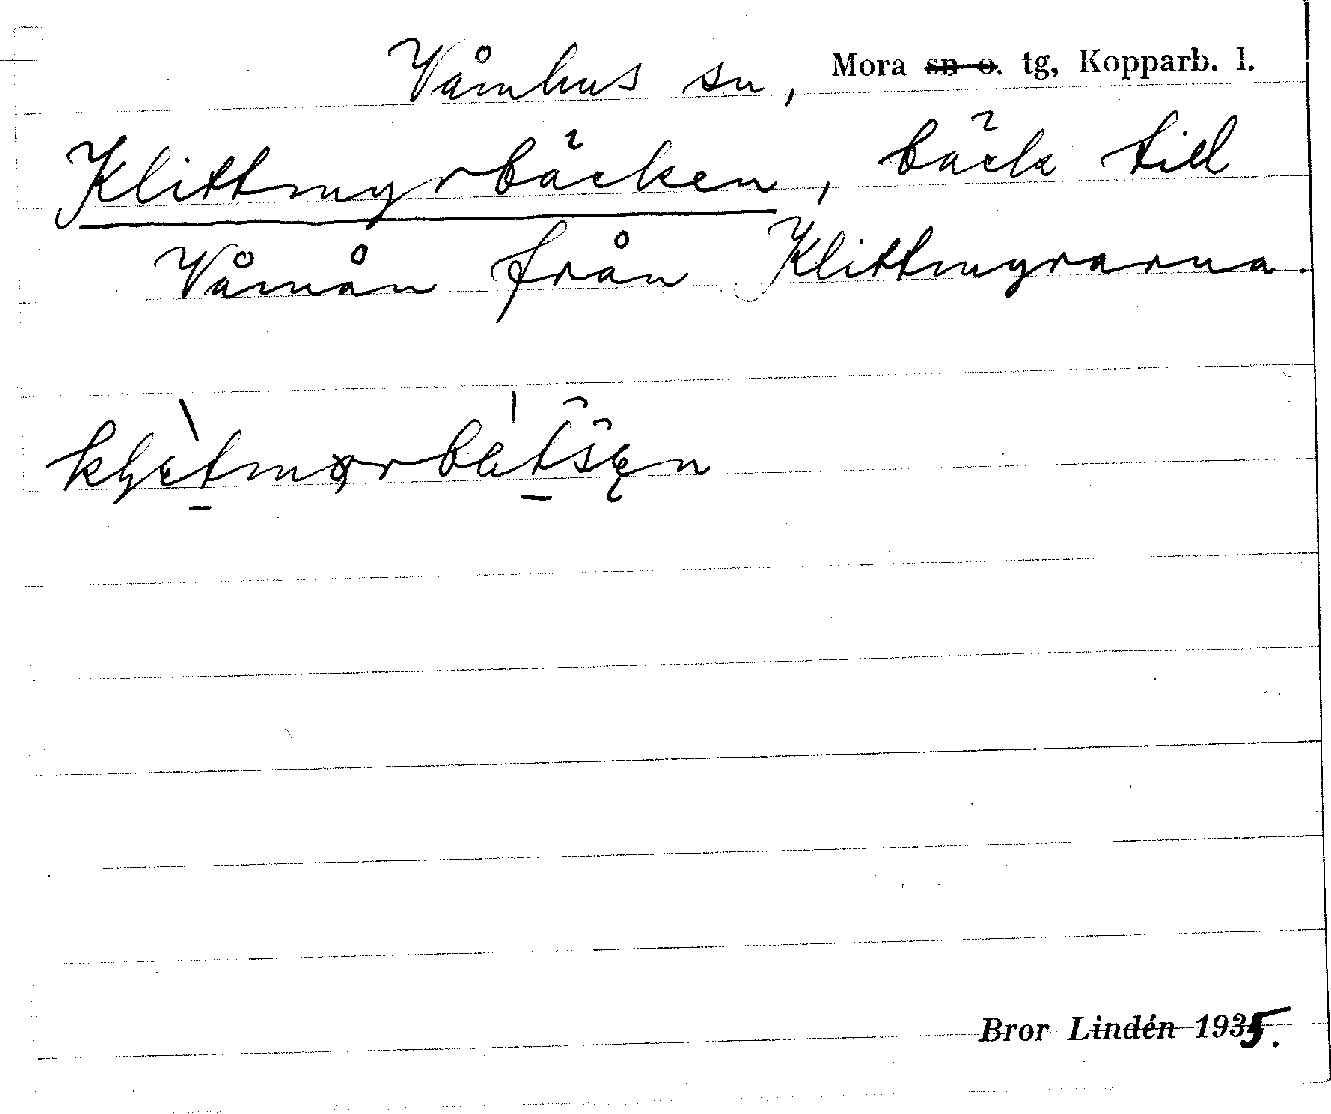 Våmhus sn, Mora sn o. tg, Kopparb. l.
Klittmyrbäcken, bäck till
Våmån från Klittmyrarna.
Bror Lindén 1935.